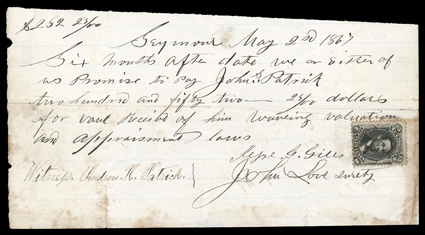 $252 25/00
Seymour May 2nd 1867
Six months after date we or either of
us Promise to pay John S. Patrick
two hundred and fifty two — 25/00 dollars
for vaul Receivd of him waveing valuation
and appraisment laws
Jesse G. Giles
John Love surety
Witness Andrew K. Patrick